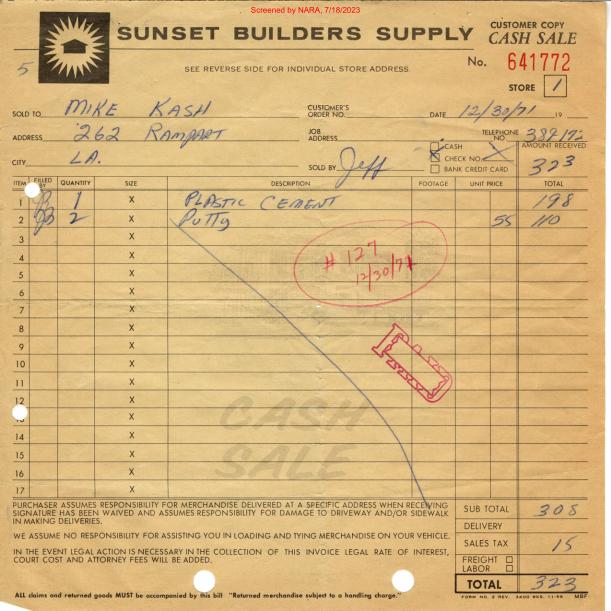 Screened by NARA, 7/18/2023
SUNSET BUILDERS SUPPLY
CUSTOMER COPY
CASH SALE
5
SEE REVERSE SIDE FOR INDIVIDUAL STORE ADDRESS.
No. 641772
STORE 1
SOLD TO MIKE KASH CUSTOMER'S ORDER NO. DATE 12/30/71 19
ADDRESS 262 RAMPART JOB ADDRESS TELEPHONE NO.
CITY LA. SOLD BY Jeff CASH CHECK NO. BANK CREDIT CARD AMOUNT RECEIVED 323
ITEM FILLED BY QUANTITY SIZE DESCRIPTION FOOTAGE UNIT PRICE TOTAL
1 JB 1 X PLASTIC CEMENT 198
2 JB 2 X Putty 55 110
3 X
4 X
5 X
6 X
7 X
8 X
9 X
10 X
11 X
12 X
13 X
14 X
15 X
16 X
17 X
# 127
12/30/71
CASH
SALE
PURCHASER ASSUMES RESPONSIBILITY FOR MERCHANDISE DELIVERED AT A SPECIFIC ADDRESS WHEN RECEIVING
SIGNATURE HAS BEEN WAIVED AND ASSUMES RESPONSIBILITY FOR DAMAGE TO DRIVEWAY AND/OR SIDEWALK
IN MAKING DELIVERIES.
WE ASSUME NO RESPONSIBILITY FOR ASSISTING YOU IN LOADING AND TYING MERCHANDISE ON YOUR VEHICLE.
IN THE EVENT LEGAL ACTION IS NECESSARY IN THE COLLECTION OF THIS INVOICE LEGAL RATE OF INTEREST,
COURT COST AND ATTORNEY FEES WILL BE ADDED.
SUB TOTAL 308
DELIVERY
SALES TAX 15
FREIGHT
LABOR
TOTAL 323
ALL claims and returned goods MUST be accompanied by this bill "Returned merchandise subject to a handling charge."
FORM NO. 2 REV. MBF